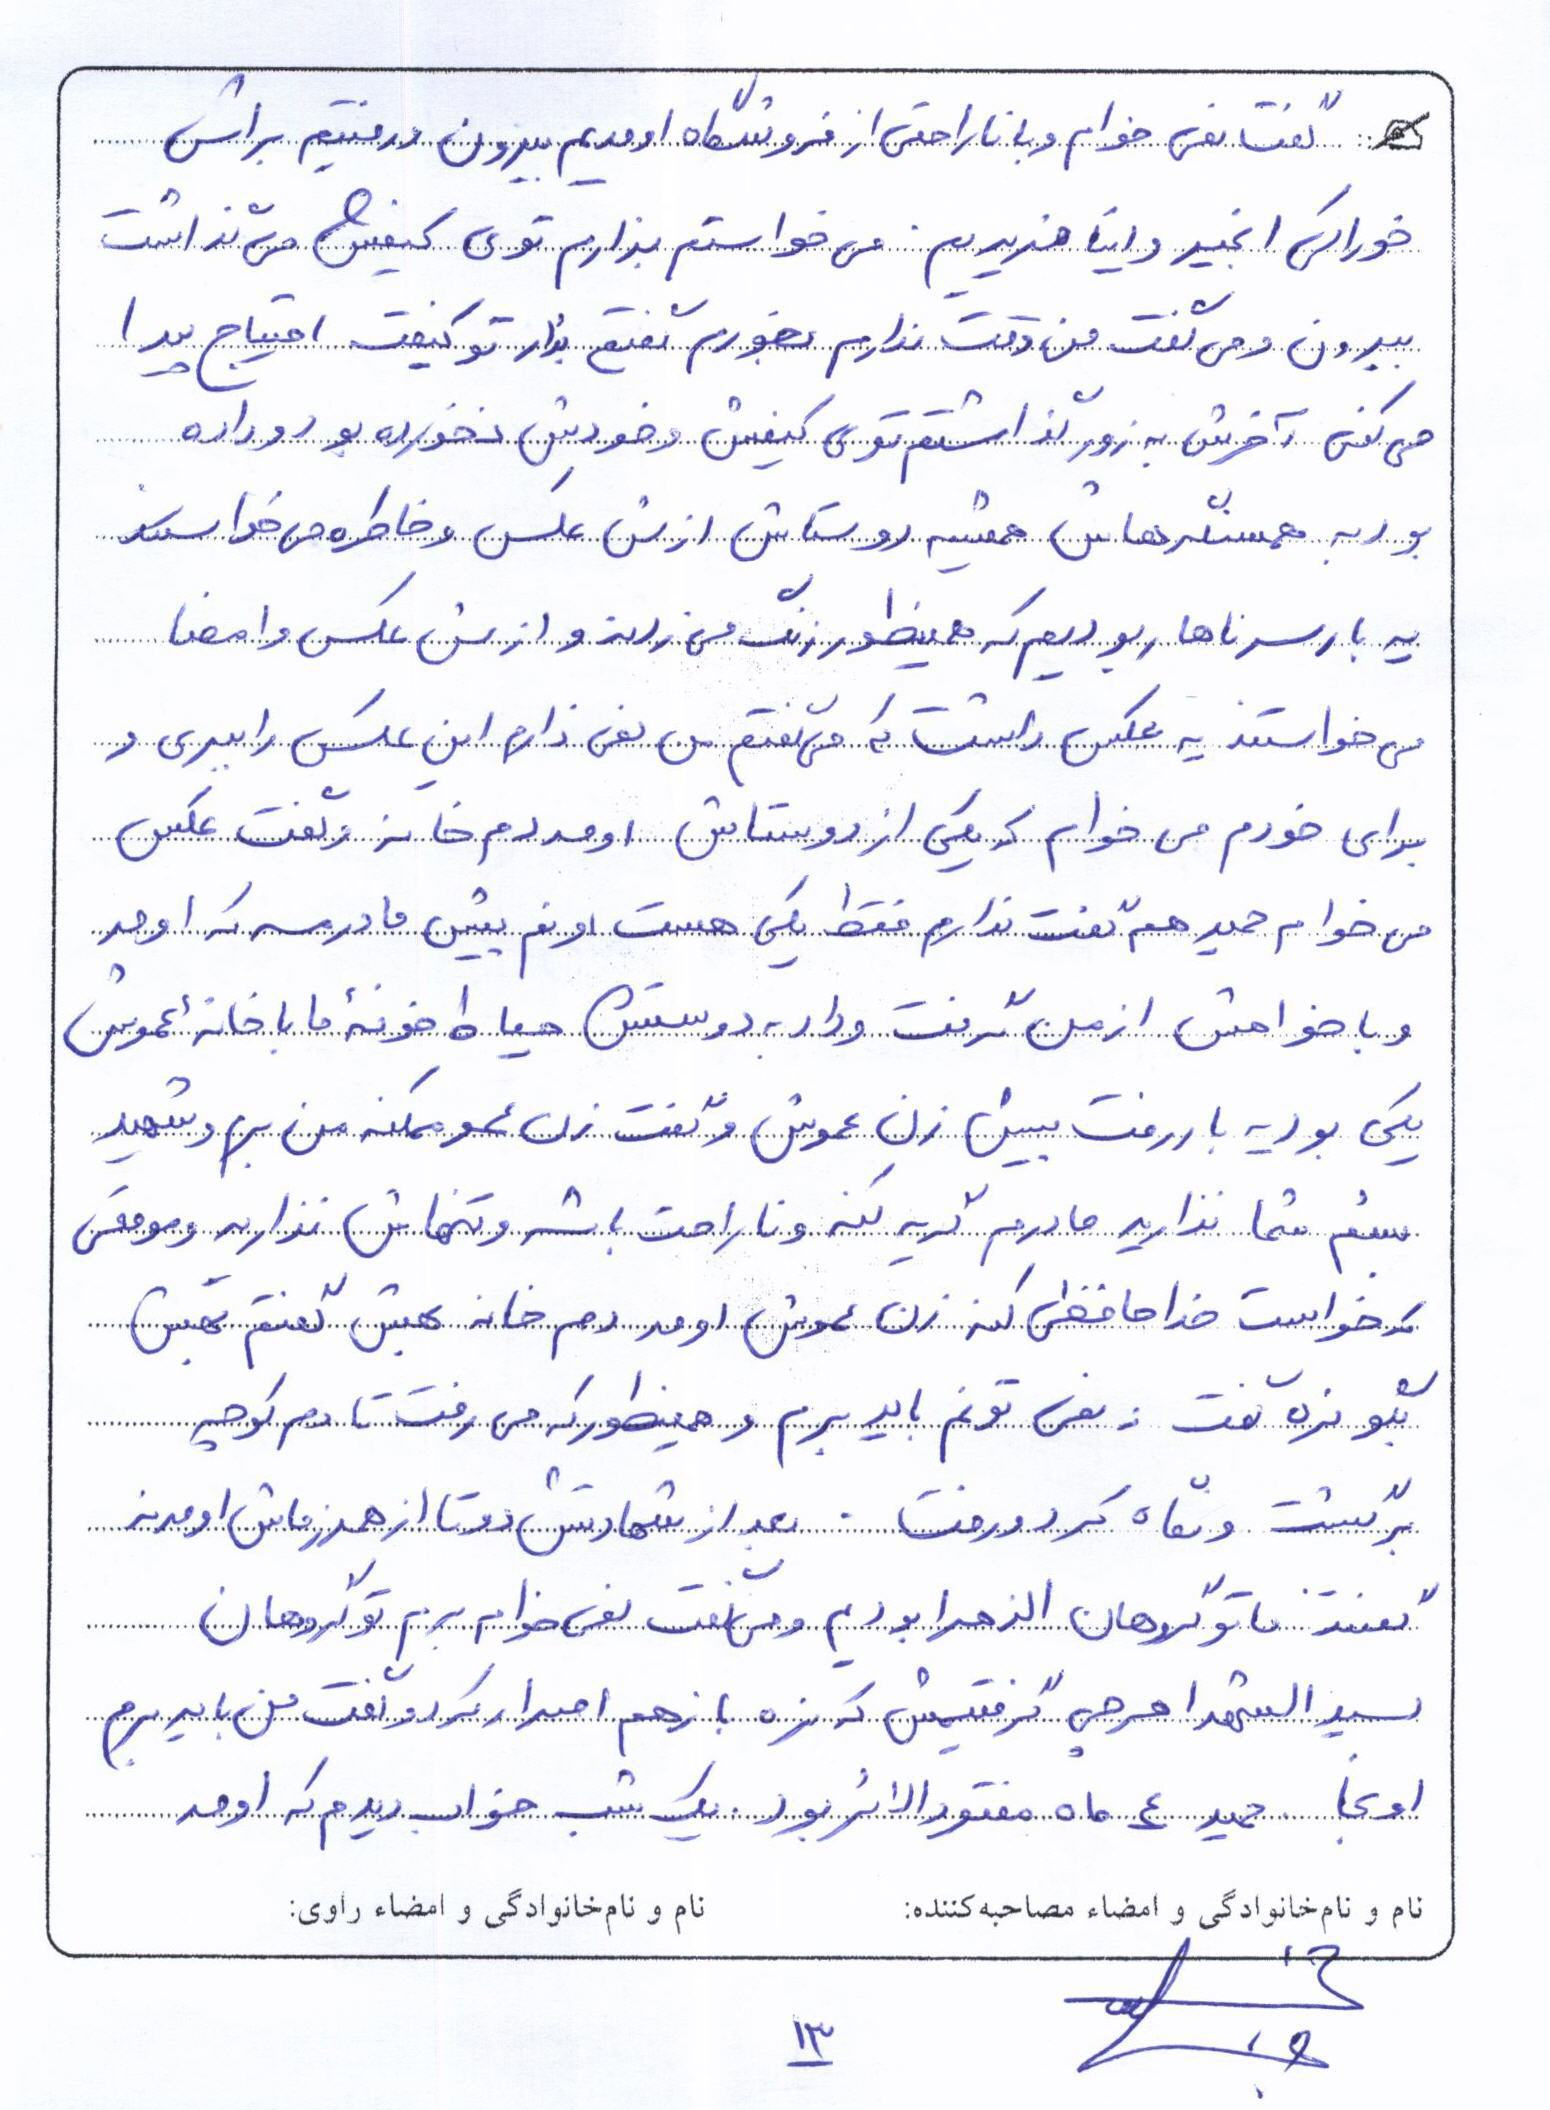 گفت نمی خوام و با ناراحتی از فروشگاه اومدیم بیرون و رفتیم براش
خوراکی انجیر و اینا خریدیم. می خواستم بذارم توی کیفش می گذاشت
بیرون و می گفت من وقت ندارم بخورم گفتم بذار تو کیفت احتیاج پیدا
می کنی آخرش به زور گذاشتم توی کیفش و خودش نخورده بود و داده
بود به همسنگرهاش همیشه دوستاش ازش عکس و خاطره می خواستند
یه بار سر ناهار بودیم که همینطور زنگ می زدند و ازش عکس و امضا
می خواستند یه عکس داشت که می گفتم من نمی ذارم این عکس را ببری و
برای خودم می خوام که یکی از دوستاش اومد دم خانه و گفت عکس
می خوام حمید هم گفت ندارم فقط یکی هست اونم پیش مادرمه که اومد
و با خواهش از من گرفت و داد به دوستش حیاط خونۀ ما با خانۀ عموش
یکی بود یه بار رفت پیش زن عموش و گفت زن عمو ممکنه من برم و شهید
بشم شما نذارید مادرم گریه کنه و ناراحت باشه و تنهاش نذارید و موقعی
که خواست خداحافظی کنه زن عموش اومد دم خانه بهش گفتم بهش
بگو نره گفت نه نمی تونم باید برم و همینطور که می رفت تا دم کوچه
برگشت و نگاه کرد و رفت. بعد از شهادتش دو تا از همرزماش اومدند
گفتند ما تو گردهان الزهرا بودیم و می گفت نمی خوام برم تو گردهان
سید الشهدا هر چی گرفتیمش که نره باز هم اصرار کرد و گفت من باید برم
اونجا حمید ۴ ماه مفقودالاثر بود. یک شب خواب دیدم که اومد
نام و نام‌خانوادگی و امضاء مصاحبه‌کننده: نام و نام‌خانوادگی و امضاء راوی:
۱۳